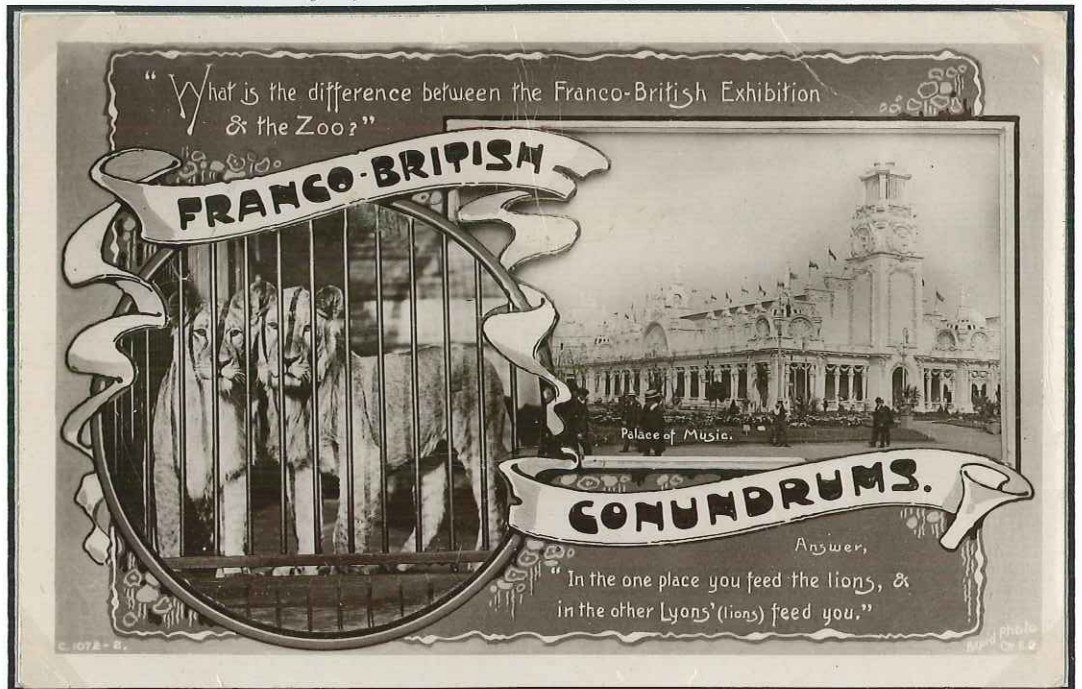 “What is the difference between the Franco-British Exhibition
& the Zoo?”
FRANCO-BRITISH
Palace of Music.
CONUNDRUMS.
Answer,
“In the one place you feed the lions, &
in the other Lyons' (lions) feed you.”
C. 1072-2.
Rapid Photo
Co E.C